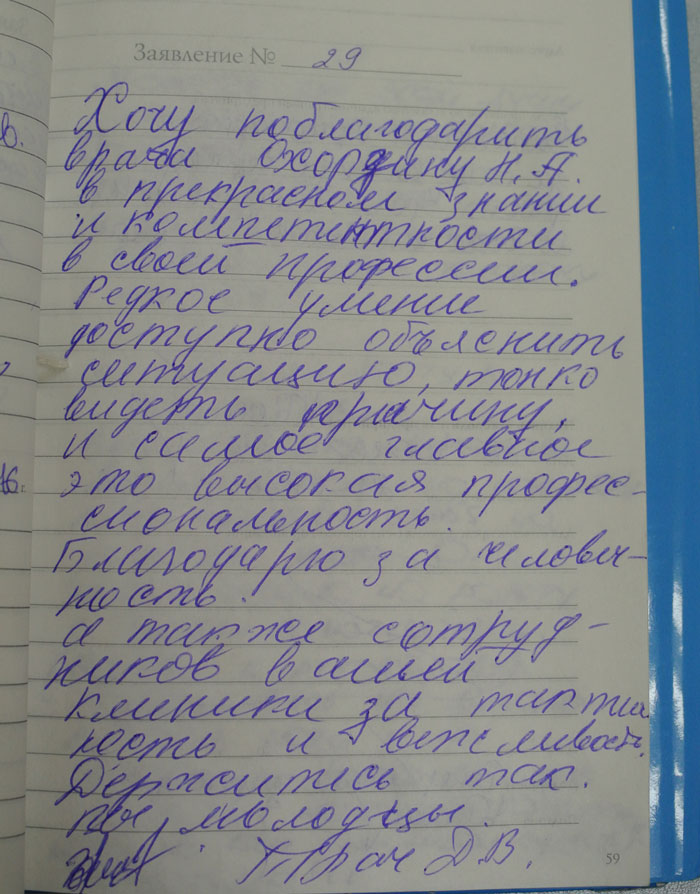 Заявление № 29
Хочу поблагодарить
врача Охордину Н.А.
в прекрасном знании
и компетентности
в своей профессии.
Редкое умение
доступно объяснить
ситуацию, тонко
видеть причину,
и самое главное
это высокая профес-
сиональность.
Благодарю за человеч-
ность.
а также сотруд-
ников вашей
клиники за тактич
ность и вежливость.
Держитесь так.
молодцы.
Трач Д.В.
59